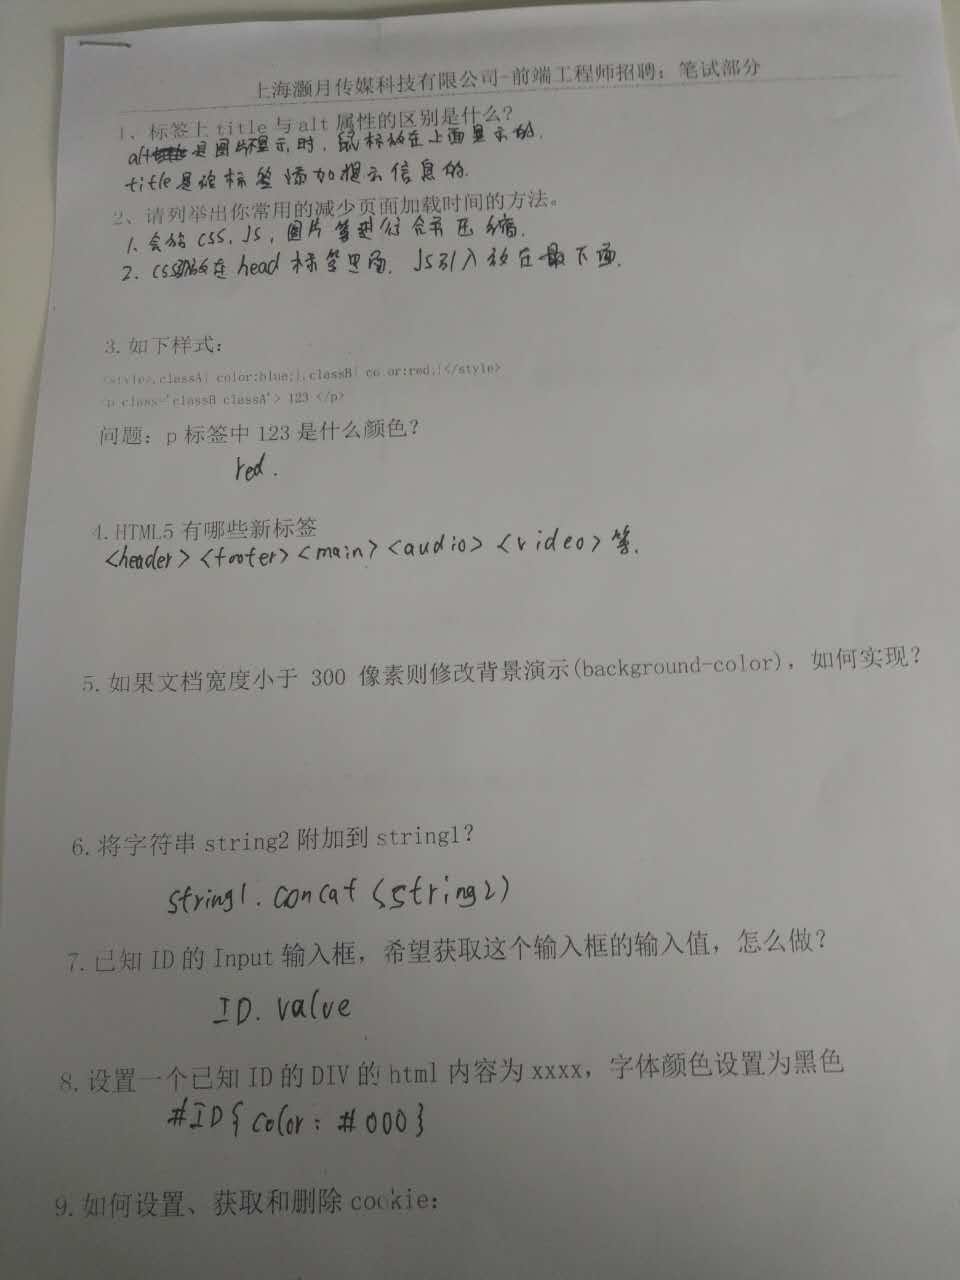 上海灏月传媒科技有限公司-前端工程师招聘：笔试部分
1、标签上 title 与 alt 属性的区别是什么？
alt 是图片提示时，鼠标放在上面显示的.
title 是给标签添加提示信息的.
2、请列举出你常用的减少页面加载时间的方法。
1、会给 css、js，图片等进行合并压缩.
2、css 放在 head 标签里面. js引入放在最下面.
3. 如下样式：
<style>.classA{ color:blue;}.classB{ co or:red;}</style>
<p class='classB classA'> 123 </p>
问题：p 标签中 123 是什么颜色？
red.
4. HTML5 有哪些新标签
<header> <footer> <main> <audio> <video> 等.
5. 如果文档宽度小于 300 像素则修改背景演示(background-color)，如何实现？
6. 将字符串 string2 附加到 string1？
string1. concat (string2)
7. 已知 ID 的 Input 输入框，希望获取这个输入框的输入值，怎么做？
ID. value
8. 设置一个已知 ID 的 DIV 的 html 内容为 xxxx，字体颜色设置为黑色
#ID{ color : #000}
9. 如何设置、获取和删除 cookie：